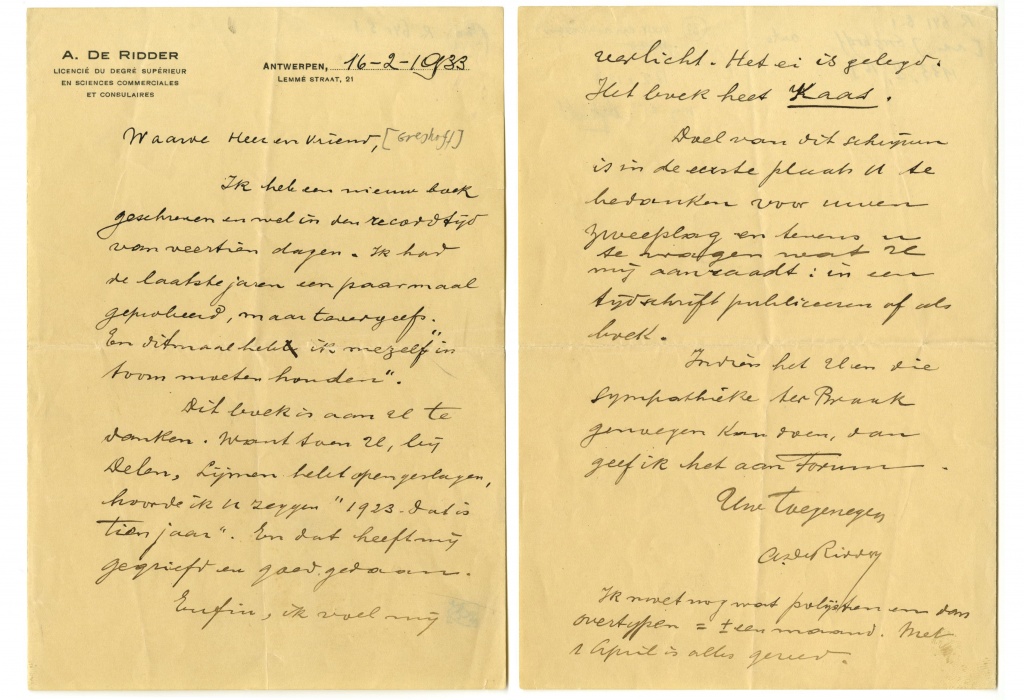 A. DE RIDDER
LICENCIÉ DU DEGRÉ SUPÉRIEUR
EN SCIENCES COMMERCIALES
ET CONSULAIRES
ANTWERPEN, 16-2-1933
LEMMÉ STRAAT, 21
Waarde Heer en Vriend, [Greshoff]
Ik heb een nieuw boek
geschreven en wel in den recordtijd
van veertien dagen. Ik had
de laatste jaren een paar maal
geprobeerd, maar tevergeefs.
En ditmaal heb ik mezelf "in
toom moeten houden".
Dit boek is aan U te
danken. Want toen U, bij
Delen, Lijmen hebt opengeslagen,
hoorde ik U zeggen "1923. Dat is
tien jaar". En dat heeft mij
gegriefd en goed gedaan.
Enfin, ik voel mij
verlicht. Het ei is gelegd.
Het boek heet Kaas.
Doel van dit schrijven
is in de eerste plaats U te
bedanken voor uwen
zweepslag en tevens U
te vragen wat U
mij aanraadt: in een
tijdschrift publiceeren of als
boek.
Indien het U en die
sympathieke ter Braak
genoegen kan doen, dan
geef ik het aan Forum.
Uw toegenegen
A. de Ridder
Ik moet nog wat polijsten en dan
overtypen = ± een maand. Met
1 April is alles gereed.